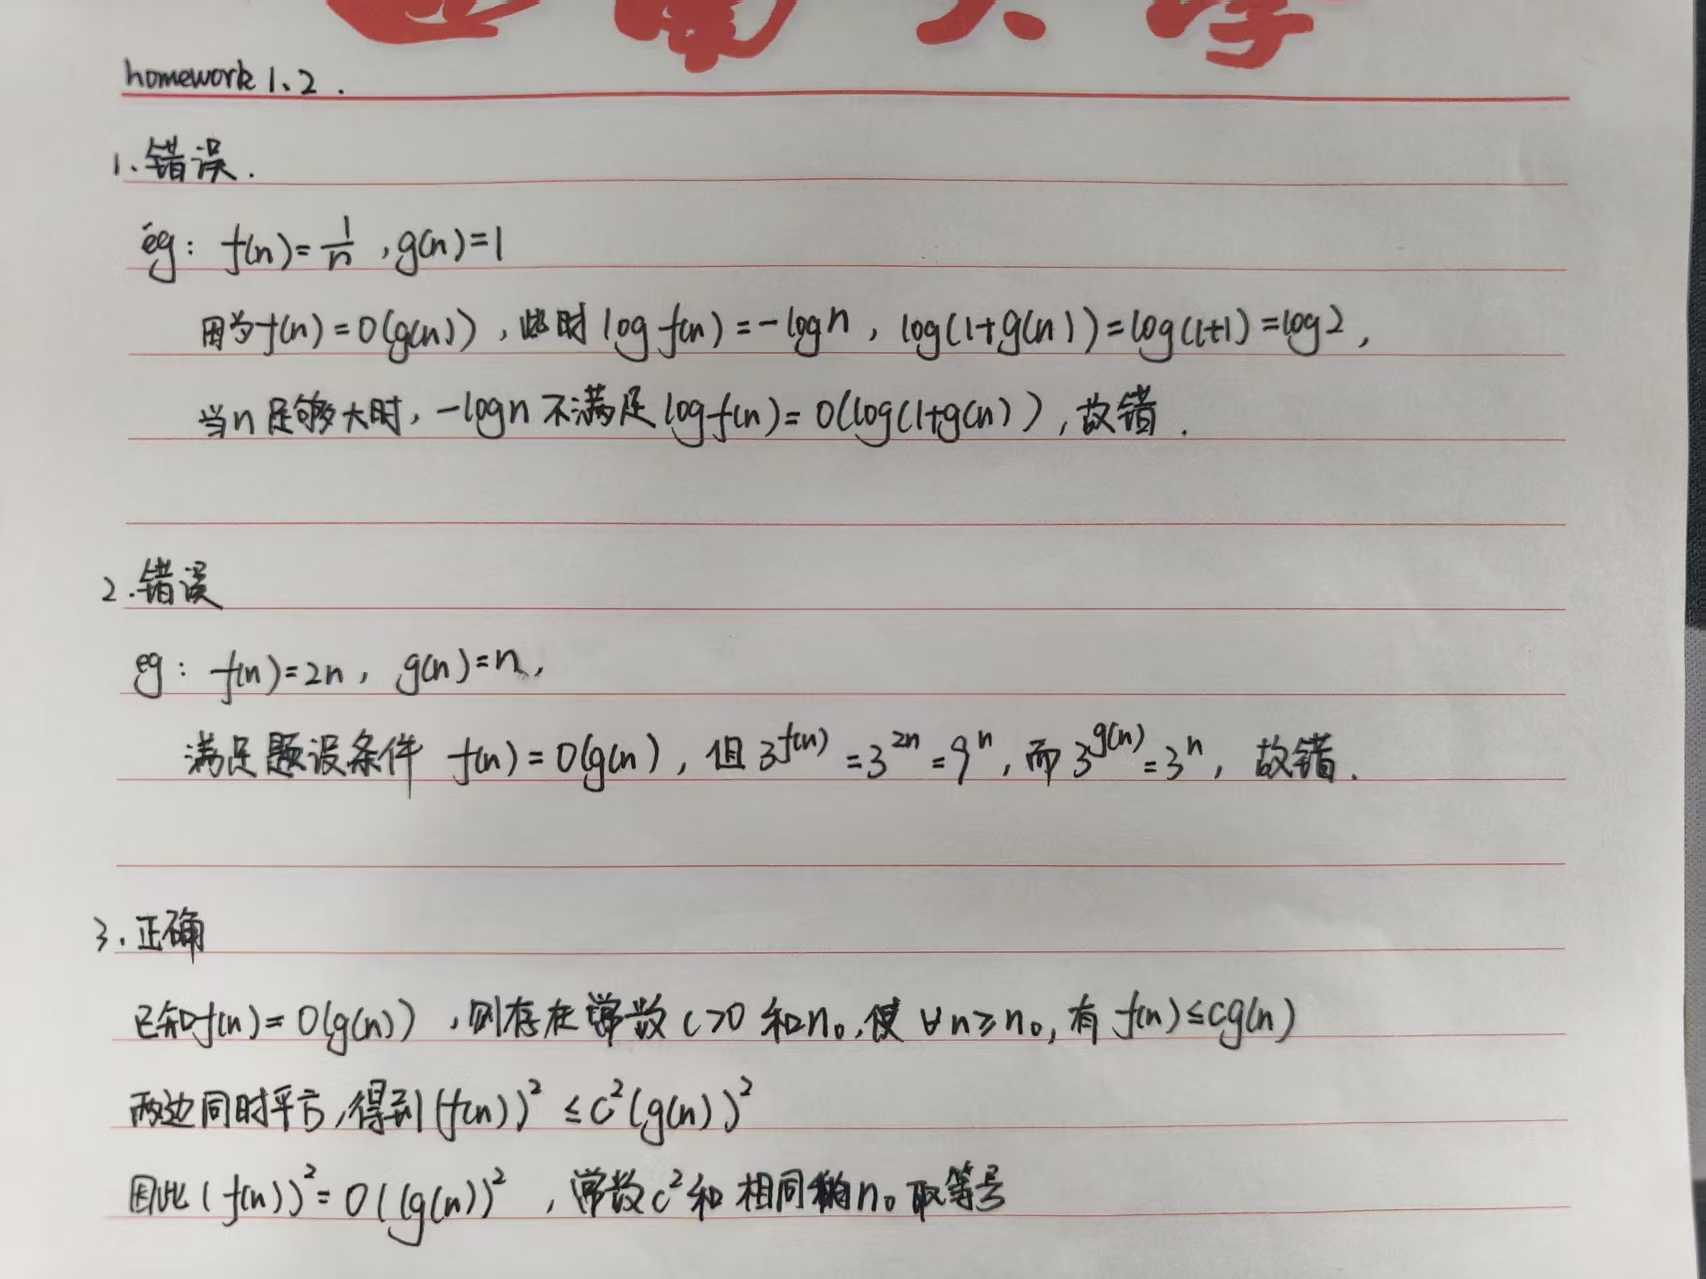 homework 1、2.
1. 错误.
eg: f(n)=1/n , g(n)=1
因为f(n)=O(g(n)), 此时 log f(n)=-logn, log(1+g(n))=log(1+1)=log2,
当n足够大时, -logn 不满足 logf(n)=O(log(1+g(n)), 故错.
2. 错误
eg: f(n)=2n, g(n)=n,
满足题设条件 f(n)=O(g(n), 但 3^{f(n)}=3^{2n}=9^n, 而 3^{g(n)}=3^n, 故错.
3. 正确
已知f(n)=O(g(n)), 则存在常数 c>0 和n₀, 使 ∀n≥n₀, 有 f(n)≤cg(n)
两边同时平方, 得到(f(n))²≤c²(g(n))²
因此(f(n))²=O((g(n))², 常数c²和相同的n₀取等号